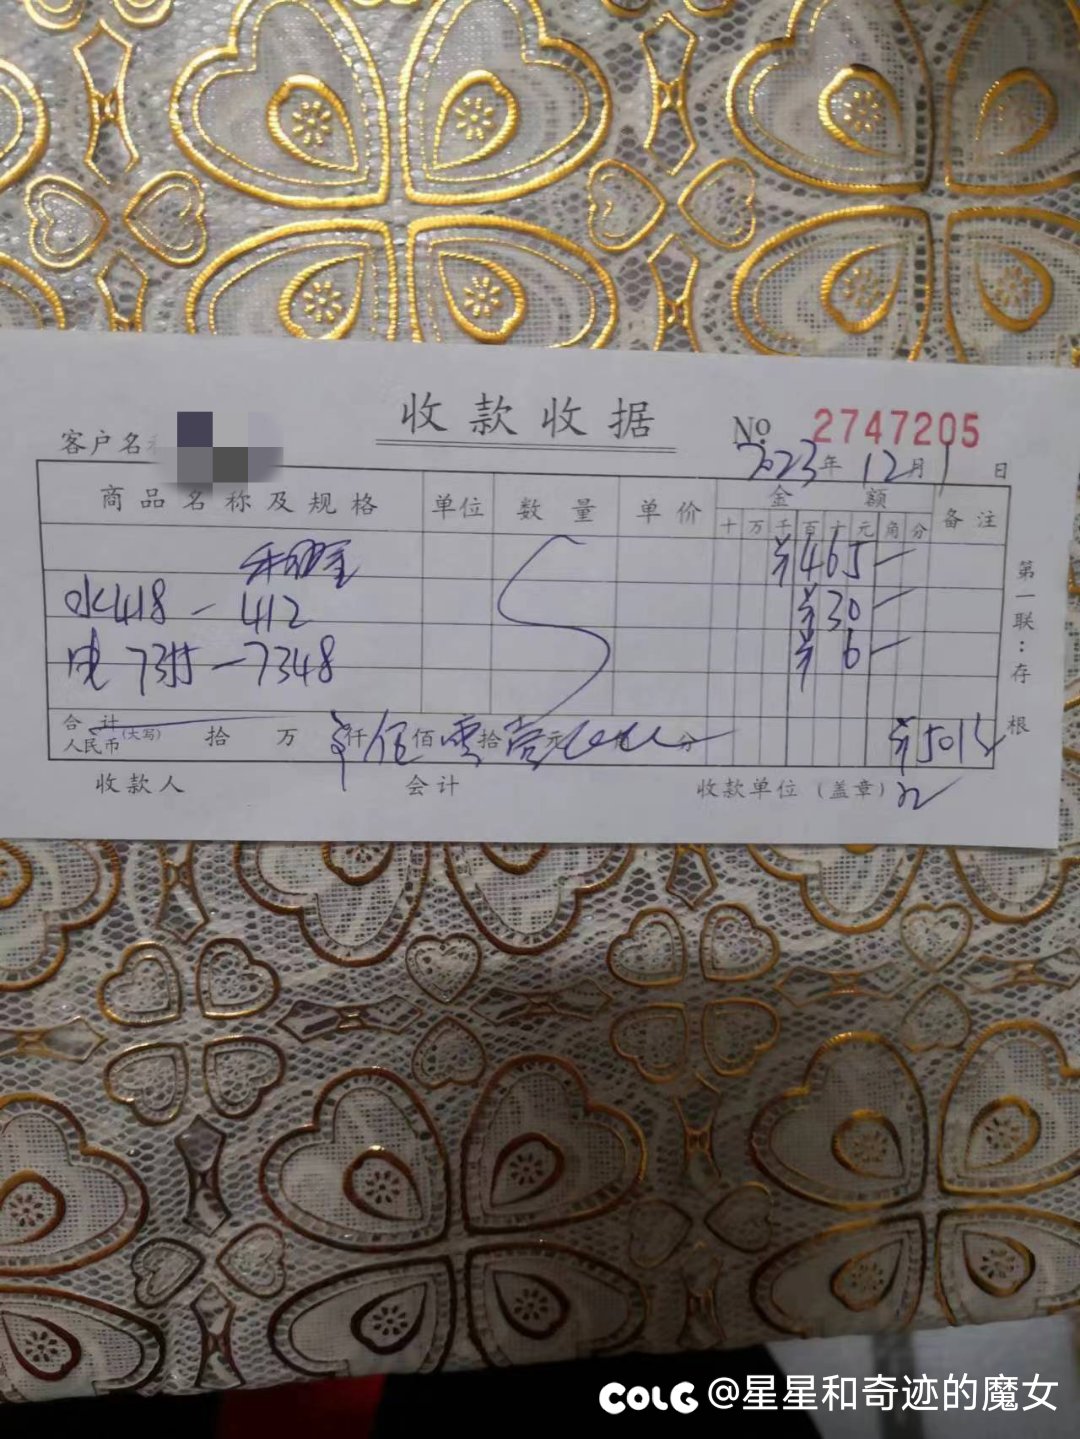 收款收据
No 2747205
客户名
2023年12月1日
商品名称及规格 单位 数量 单价 金额 备注
十 万 千 百 十 元 角 分
¥465-
水418-412 ¥30-
电 -7348 ¥6-
合计
人民币(大写) 拾 万 仟 伍佰零拾壹元 分 ¥501
收款人 会计 收款单位(盖章)
第一联:存根
COLG @星星和奇迹的魔女